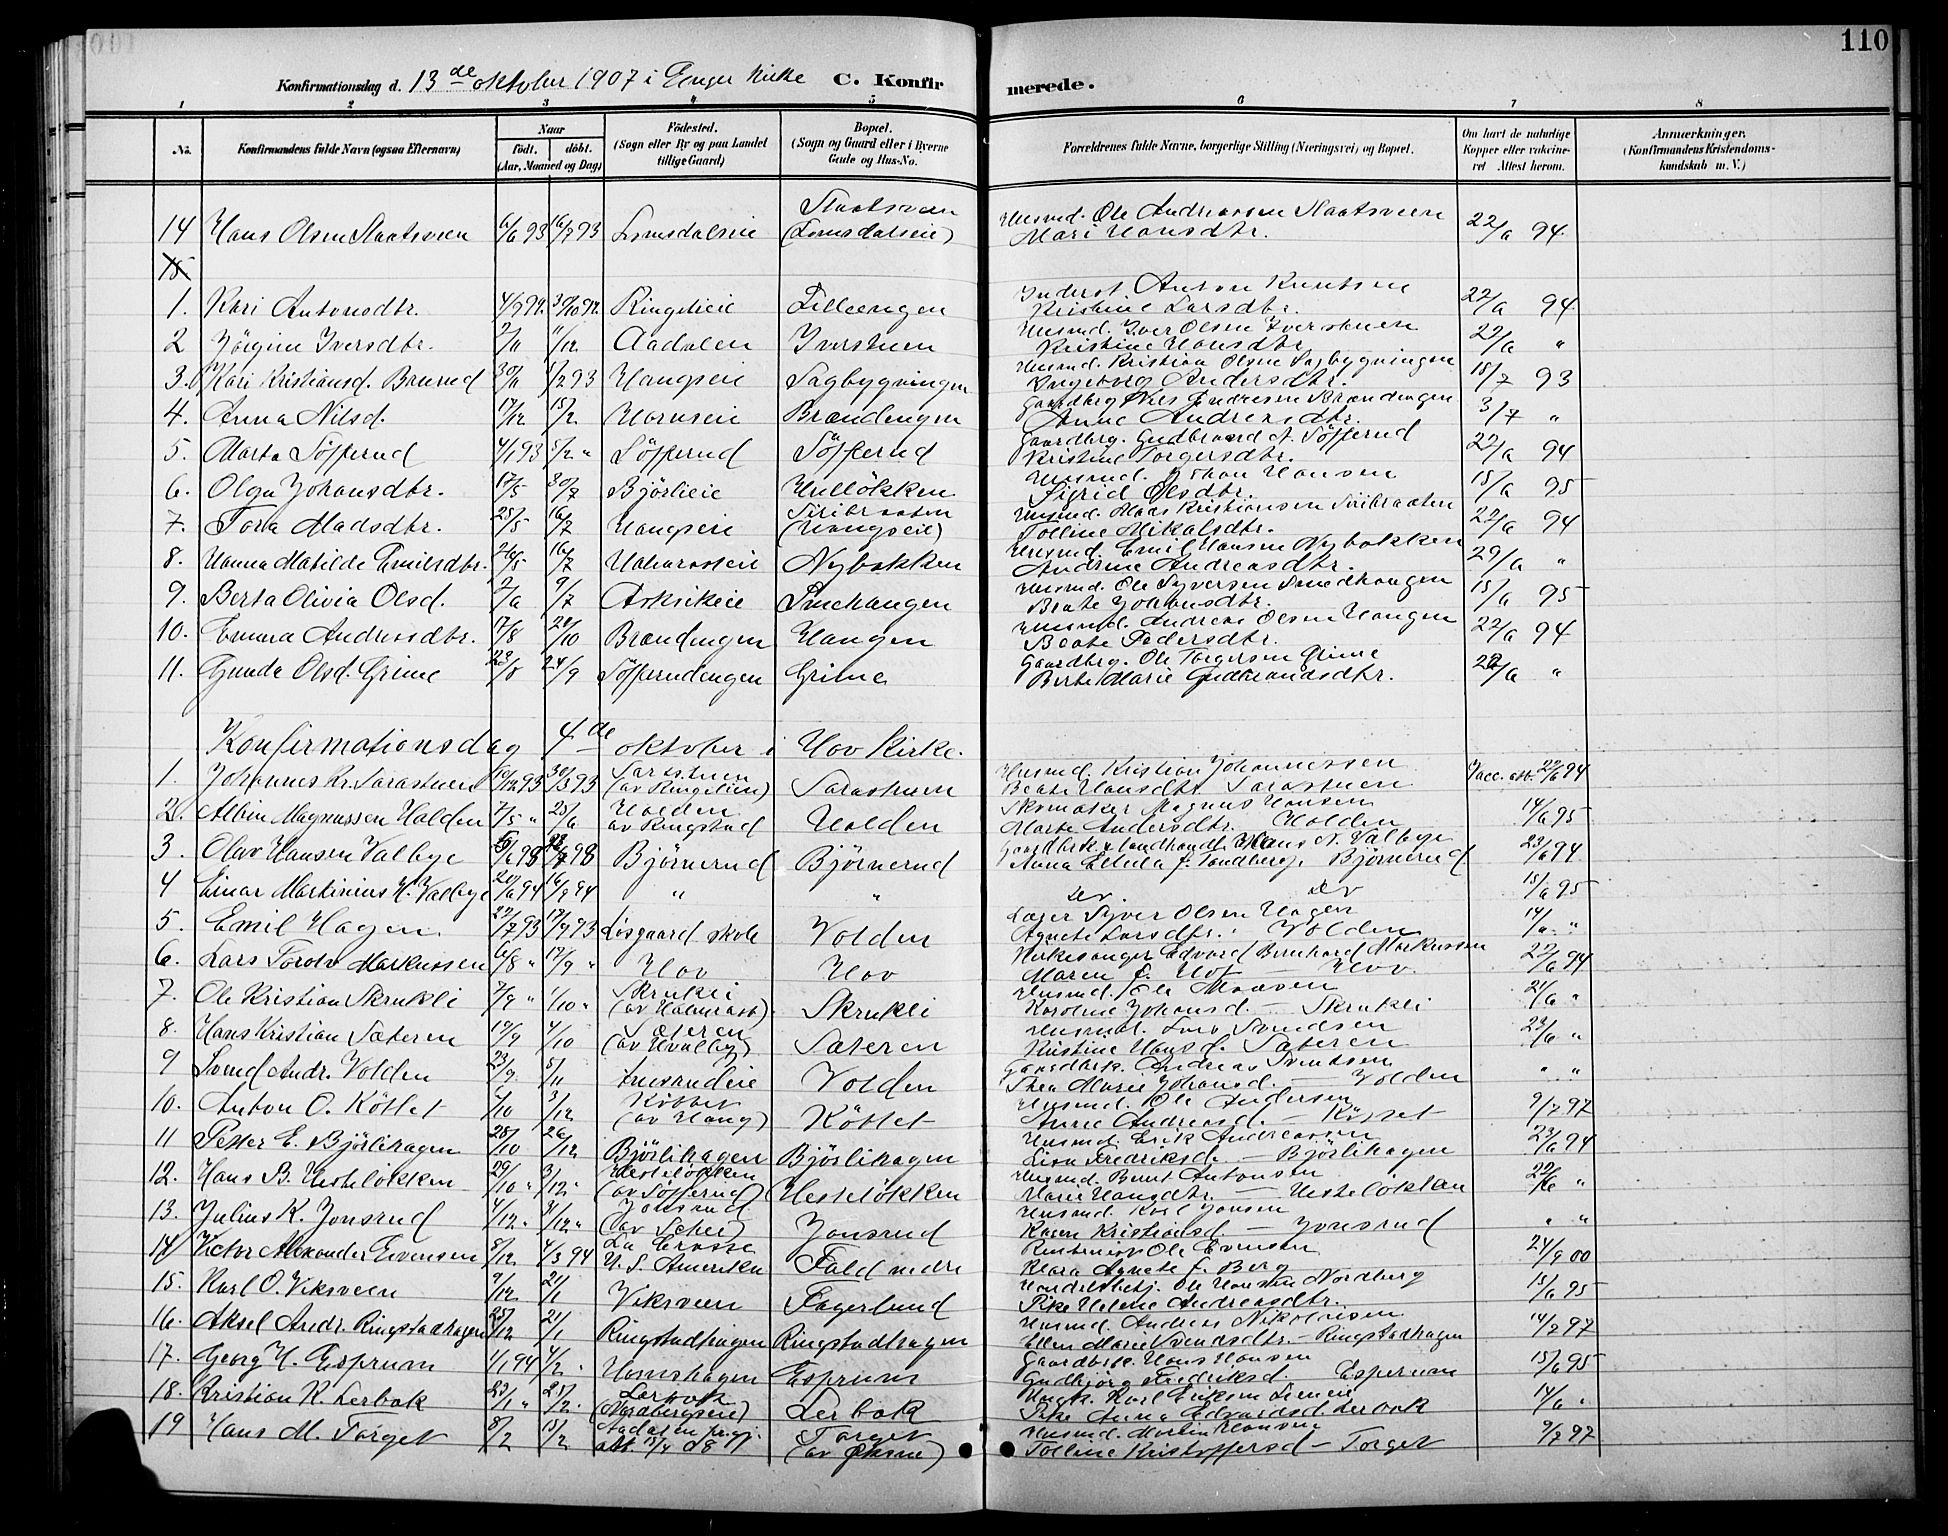 110
Konfirmationsdag d. 13de oktober 1907 i Enger Kirke C. Konfirmerede.
1 2 3 4 5 6 7 8
No. Konfirmandens fulde Navn (ogsaa Efternavn) Naar födt. döbt. (Aar, Maaned og Dag) Födested. (Sogn eller By og paa Landet tillige Gaard) Bopæl. (Sogn og Gaard eller i Byerne Gade og Hus-No. Forældrenes fulde Navne, borgerlige Stilling (Næringsvei) og Bopæl. Om havt de naturlige Kopper eller vakcineret Attest herom. Anmærkninger. (Konfirmandens Kristendomskundskab m. V.)
14 Hans Olsen Staatsveen 6/6 93 16/7 93 Lomsdalseie Staatsveen (Lomsdalseie) Husmd. Ole Andreassen Staatsveen Mari Hansdtr. 22/6 94
15
1. Kari Antonsdtr. Ringelieie Lilleengen Inderst Anton Knutsen Kristine Larsdtr. 22/6 94
2 Jörgine Iversdtr. 2/11 11/12 Aadalen Iverstuen Husmd. Iver Olsen Iverstuen Kristine Hansdtr. 22/6 "
3. Kari Kristiansd. Haugseie Sagbygningen Husmd. Kristian Olsen Sagbygningen Ingeborg Andersdtr. 15/7 93
4. Anna Nilsd. 17/12 15/2 Hornseie Brændengen Gaardbrg. Nils Andresen Brændengen Anne Andreasdtr. 3/7 "
5. Marta Söfferud 4/1 93 5/2 " Söfferud Söfferud Gaardbrg. Gudbrand A. Söfferud Kristine Torgersdtr. 22/6 94
6. Olga Johansdtr. 17/5 30/7 Björlieie Hullökken Husmd. Johan Hansen Sigrid Olsdtr. 15/6 95
7. Tora Madsdtr. 25/5 16/7 Haugseie Siribraaten (Haugseie) Husmd. Mads Kristiansen Siribraaten Tolline Mikalsdtr. 22/6 94
8. Hanna Matilde Emilsdtr. 26/5 16/7 Nybakken Husmd. Emil Hansen Nybakken Andrine Andreasdtr. 29/6 "
9. Berta Olivia Olsd. 2/6 9/7 Askikeie Smehaugen Husmd. Ole Syversen Smedhaugen Beate Johansdtr. 15/6 95
10. Emma Andreasdtr. 17/8 Brændengen Haugen Husmd. Andreas Olsen Haugen Beate Pedersdtr. 22/6 94
11. Gunda Olsd. Grime 23/8 24/9 Söfferudengen Grime Gaardbrg. Ole Torgersen Grime Berte Marie Gudbrandsdtr. 22/6 "
Konfirmationsdag 4de oktober i Hov Kirke.
1. Johannes Kr. Sarastuen 30/3 93 Sarastuen (av Ringelien) Sarastuen Husmd. Kristian Johannessen Beate Hansdtr. Sarastuen Vacc. att. 22/6 94
2. Albin Magnussen Holden 7/5 " 25/6 Holden av Ringstad Holden Skomaker Magnus Hansen Marte Andersdtr. Holden 14/6 95
3. Olav Hansen Valbye Björnerud Björnerud Gaardbrk & landhandl. Hans N. Valbye Anna Elleda f. Sandberg, Björnerud 23/6 94
4 Einar Martinius H. Valbye 20/6 94 16/9 94 " " Do. Do 15/6 95
5. Emil Hagen 22/7 93 17/9 93 Lösgaard skole Volden Lærer Syver Olsen Hagen Agnete Larsdtr. Volden 14/6 "
6. Lars Torolv Markussen 6/8 " 17/9 " Hov Hov Kirkesanger Edvard Bernhard Markussen Maren f. Hov — Hov. 22/6 94
7. Ole Kristian Skrukli 7/9 " 1/10 " Skrukli Skrukli Husmd. Karoline Johansd. — Skrukli 21/6 "
8. Hans Kristian Sæteren 19/9 4/10 Sæteren (av Hvalby) Sæteren Husmd. Lars Svendsen Kristine Hansd. Sæteren 23/6 "
9 Svend Andr. Volden 23/9 5/11 Volden Gaardbrk. Andreas Svendsen Thea Marie Johansd. — Volden " "
10. Anton O. Köttet 4/10 3/12 Köttet (av Haug) Köttet Husmd. Ole Andersen Anne Andreasd. — Köttet 9/7 97
11 Petter E. Björlihagen 28/10 26/12 Björlihagen Björlihagen Husmd. Erik Andreassen Lisa Fredriksd. — Björlihagen 23/6 94
12. Hans B. Hestelökken 29/10 " 3/12 " Hestelökken (av Söfferud) Hestelökken Husmd. Bernt Antonsen Marie Hansdtr. — Hestelökken 22/6 "
13. Julius K. Jonsrud 4/12 " 31/12 " Jonsrud Jonsrud Husmd. Karl Jonsen Karen Kristiansd. — Jonsrud " "
14 Victor Alexander Evensen 8/12 4/3 94 La Crosse U. S. Amerika Fald nedre Ole Evensen Klara Agnete f. Berg 24/9 00
15. Karl O. Viksveen 9/12 21/1 Viksveen Fagerlund Handelsbetj. Ole Hansen Nordberg Pike Helene Andreasdtr. 15/6 95
16. Aksel Andr. Ringstadhagen 25/12 21/1 Ringstadhagen Ringstadhagen Husmd. Andreas Nikolaisen Ellen Marie Svendsdtr. — Ringstadhagen 14/7 97
17. Georg H. Esprum 1/1 94 4/2 " Esprum Gaardbrk. Hans Hansen Gudbjörg Fredriksd. Esperum 15/6 95
18. Kristian K. Lerbak 23/1 " 25/2 " Lerbak (Nordbergseie) Lerbak Karl Eriksen Pike Anna Edvardsd. Lerbak 14/6 "
19 Hans M. Torget 8/2 15/2 Aadalen Torget Husmd. Martin Hansen Tolline Kristoffersd — Torget 9/7 97